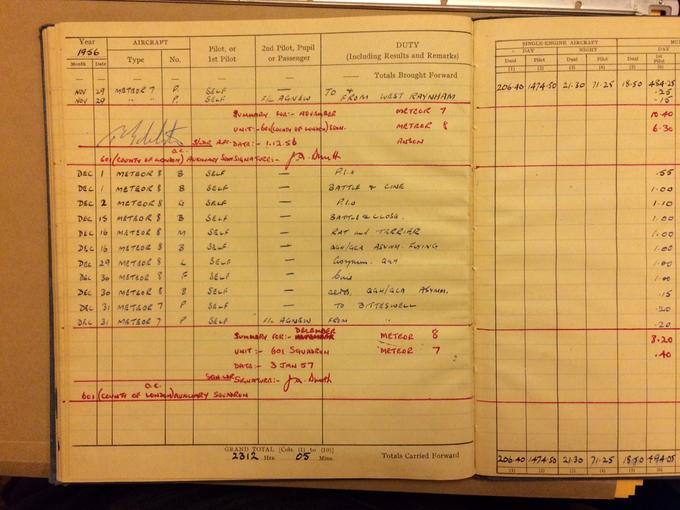 Year AIRCRAFT Pilot, or 1st Pilot 2nd Pilot, Pupil or Passenger DUTY (Including Results and Remarks) SINGLE-ENGINE AIRCRAFT
1956 DAY NIGHT DAY
Month Date Type No. Dual Pilot Dual Pilot Dual 1st Pilot
(1) (2) (3) (4) (5) (6)
— — — — — — Totals Brought Forward 206.40 1474.50 21.30 71.25 18.50 484.25
NOV 29 METEOR 7 P. SELF — TO + .25
NOV 29 " " P. SELF F/L AGNEW FROM WEST RAYNHAM .15
SUMMARY FOR:- NOVEMBER METEOR 7 10.40
UNIT:- 601 (COUNTY OF LONDON) SQDN. METEOR 8 6.30
DATE:- 1.12.56 ANSON
O.C. 601 (COUNTY OF LONDON) AUXILIARY SQN SIGNATURE:-
DEC 1 METEOR 8 B SELF — P.I.O .55
DEC 1 METEOR 8 B SELF — BATTLE & CINE 1.00
DEC 2 METEOR 8 G SELF — P.I.O 1.10
DEC 15 METEOR 8 B SELF — BATTLE & CLOSE. 1.00
DEC 16 METEOR 8 M SELF — RAT and TERRIER 1.00
DEC 16 METEOR 8 B SELF — QGH/GCA ASYMM. FLYING 1.00
DEC 29 METEOR 8 L SELF — Asymm. QGH 1.00
DEC 30 METEOR 8 F SELF — 1.00
DEC 30 METEOR 8 B SELF — QGH/GCA ASYMM. .15
DEC 31 METEOR 7 P SELF — TO BITTESWELL .20
DEC 31 METEOR 7 P SELF F/L AGNEW FROM " .20
DECEMBER
SUMMARY FOR:- METEOR 8 8.20
UNIT:- 601 SQUADRON METEOR 7 .40
DATE:- 3 JAN 57
SIGNATURE:-
O.C.
601 (COUNTY OF LONDON) AUXILIARY SQUADRON
GRAND TOTAL [Cols. (1) to (10)]
2312 Hrs. 05 Mins. Totals Carried Forward 206.40 1474.50 21.30 71.25 18.50 494.05
(1) (2) (3) (4) (5) (6)